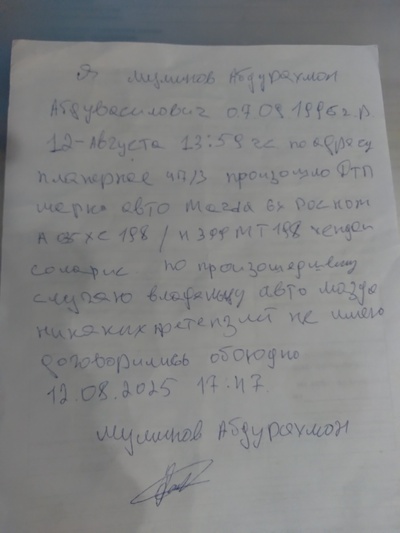 Я Муминов Абдурахмон
Абдувасилович 07.09.1996 г.р.
12-Августа 13:59 чс по адресу
планерная 47/3 произошло ДТП
марка авто Мазда 6х Росном
198 / Н 399 МТ 198 хендай
солярис по произошедшему
случаю владельцу авто мазда
никаких претензией не имею
договорились обоюдно
12.08.2025 17:47
Муминов Абдурахмон